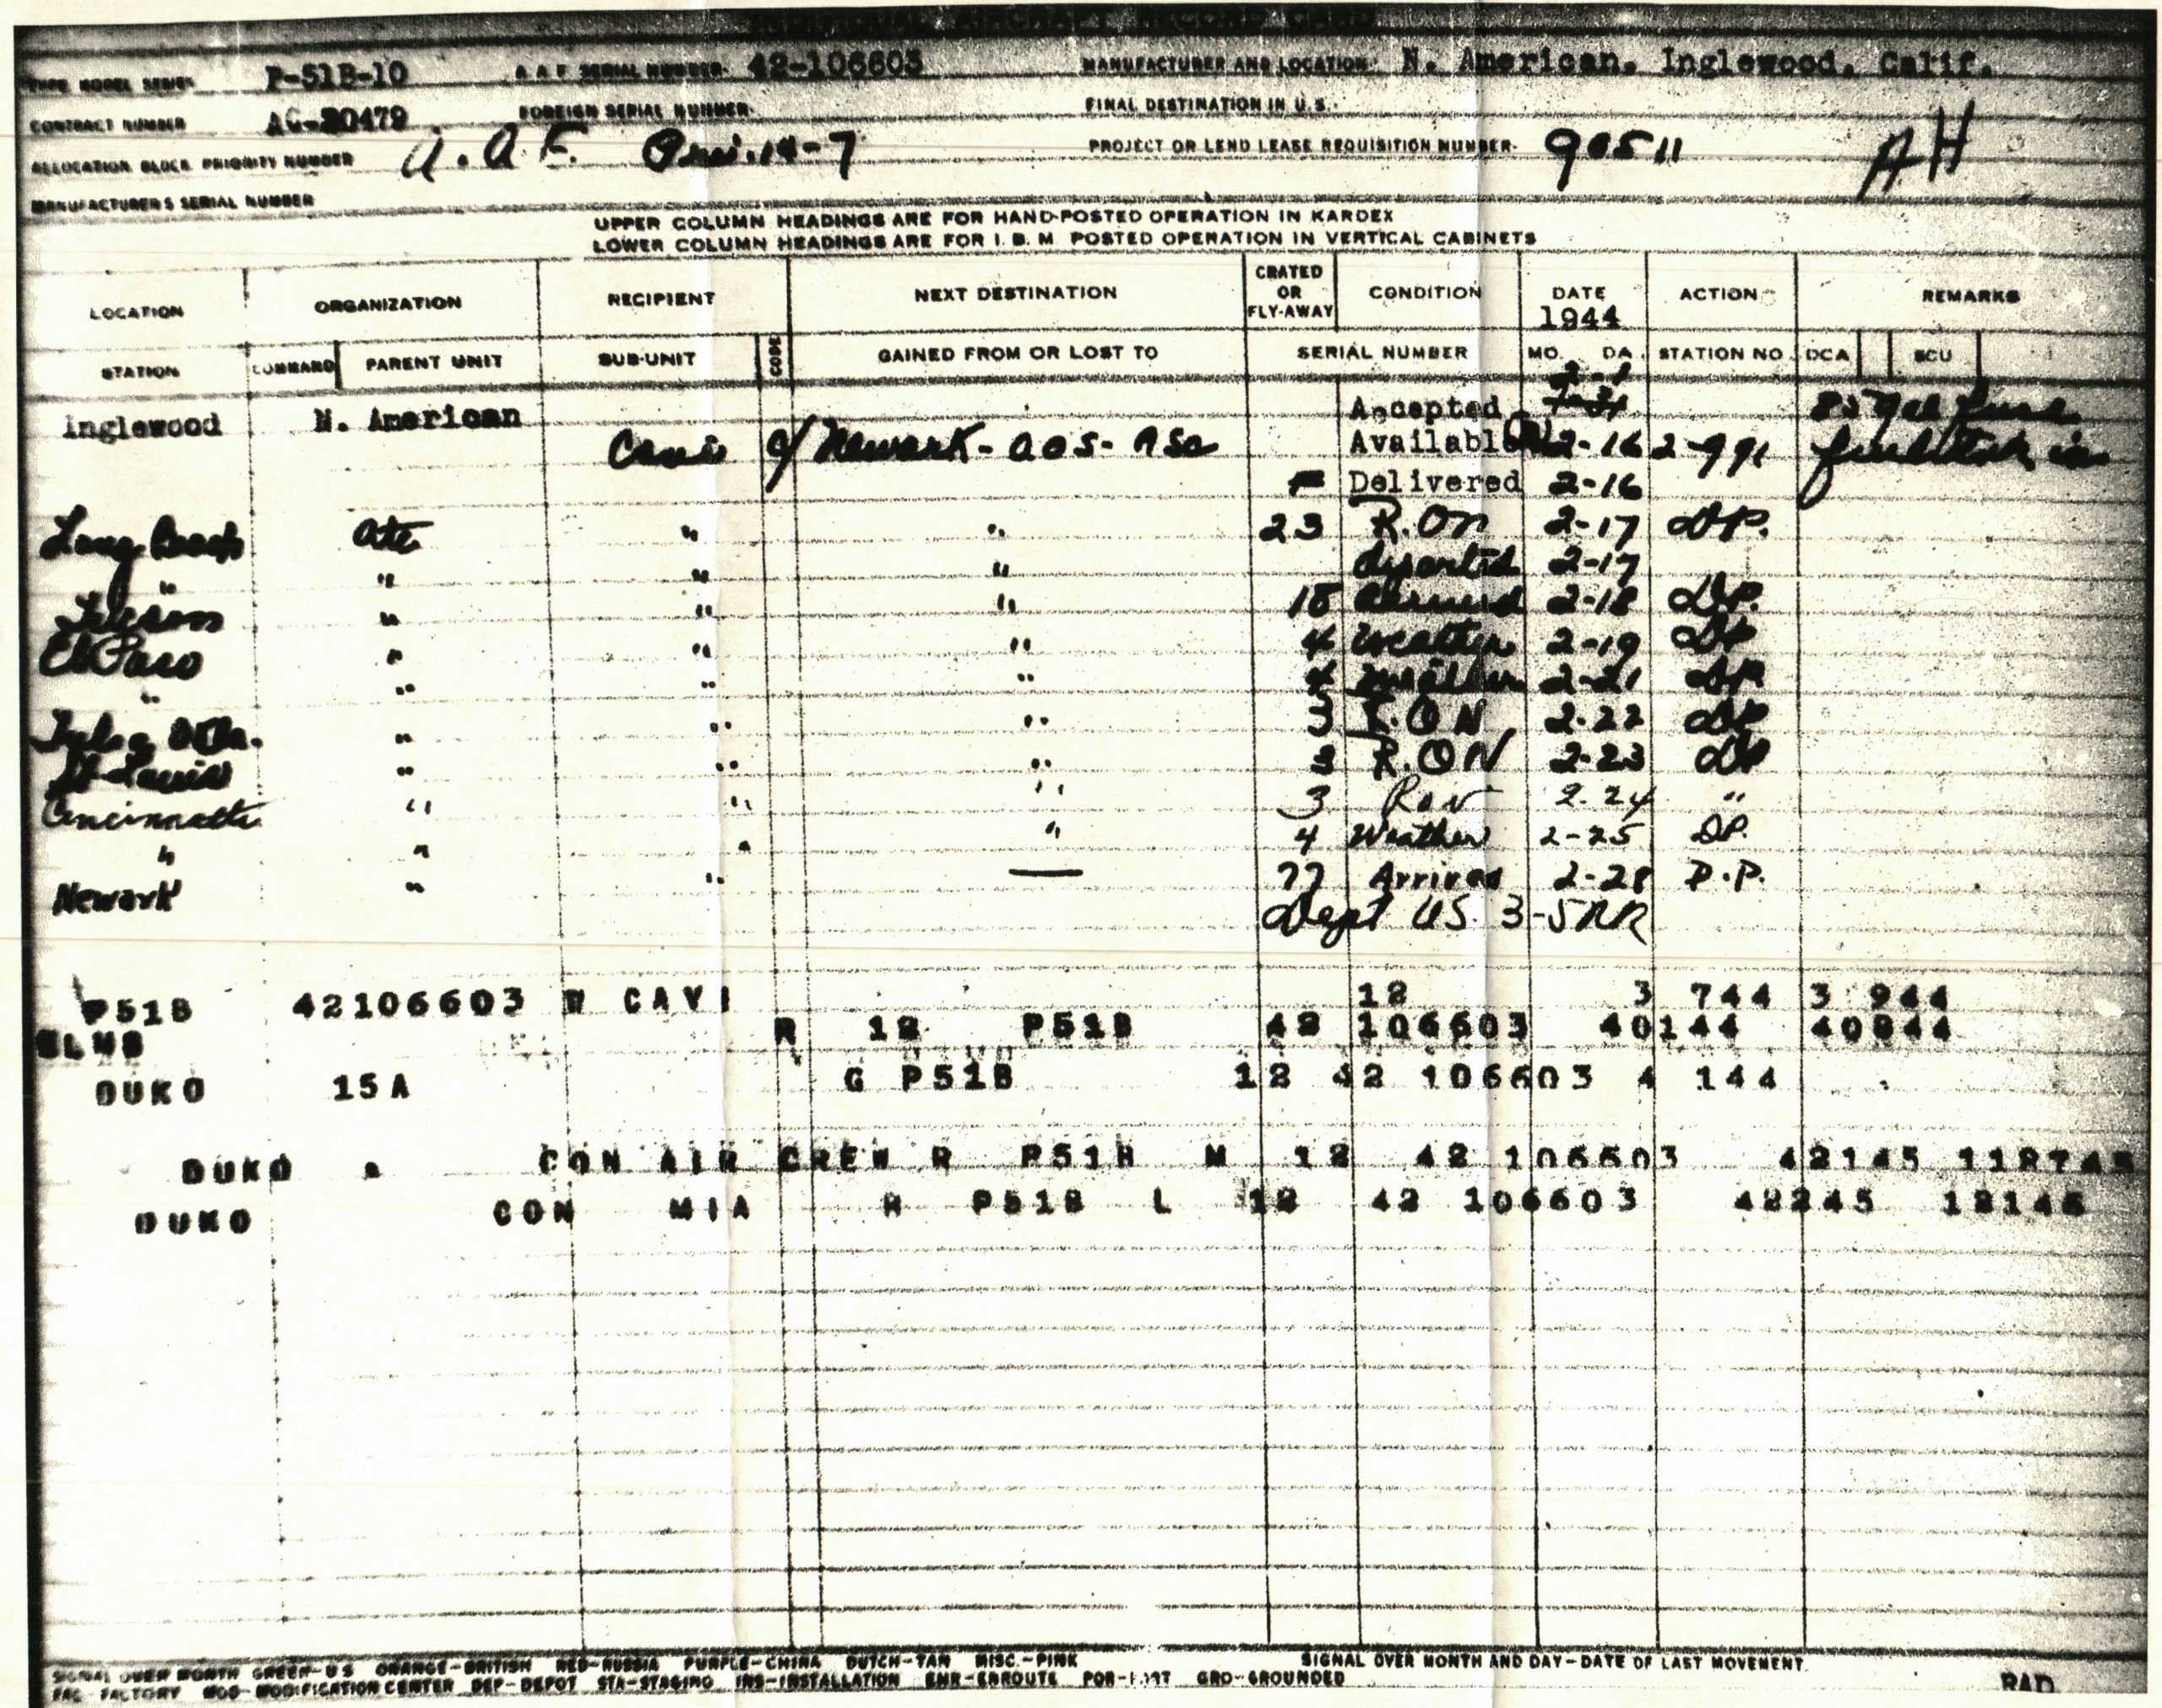 INDIVIDUAL AIRCRAFT RECORD CARD
TYPE MODEL SERIES P-51B-10 A A F SERIAL NUMBER 42-106603 MANUFACTURER AND LOCATION N. American, Inglewood, Calif.
CONTRACT NUMBER AC-30479 FOREIGN SERIAL NUMBER FINAL DESTINATION IN U.S.
ALLOCATION BLOCK PRIORITY NUMBER A.A.F. 14-7 PROJECT OR LEND LEASE REQUISITION NUMBER 90511 AH
MANUFACTURERS SERIAL NUMBER
UPPER COLUMN HEADINGS ARE FOR HAND-POSTED OPERATION IN KARDEX
LOWER COLUMN HEADINGS ARE FOR I. B. M. POSTED OPERATION IN VERTICAL CABINETS
LOCATION ORGANIZATION RECIPIENT NEXT DESTINATION CRATED OR FLY-AWAY CONDITION DATE 1944 ACTION REMARKS
STATION COMMAND PARENT UNIT SUB-UNIT CODE GAINED FROM OR LOST TO SERIAL NUMBER MO. DA. STATION NO DCA SCU
2-1
Inglewood N. American Accepted
Cavi Newark-AOS- Available 2-16
F Delivered 2-16
Long Beach " " 23 R.ON 2-17 DP.
" " " " departed 2-17
Tucson " " " 18 2-18 DP.
El Paso " " " 4 Weather 2-19 DP
" " " " 4 Weather 2-21 DP
Tulsa Okla. " " " 3 R.O N 2-22 DP
St Louis " " " 3 R.ON 2-23 DP
Cincinnati " " " 3 RON 2-24 "
" " " " 4 Weather 2-25 DP.
Newark " " — 77 Arrived 2-28 P.P.
Dept US 3-5 RR
P51B 42106603 CAVI 12 3 744 3 944
R 12 P51B 42 106603 40144 40844
DUKO 15A G P51B 12 42 106603 4 144
DUKO CON AIR CREW R P51H M 12 42 106603 42145
DUKO CON MIA R P51B L 12 42 106603 42245 12146
SIGNAL OVER MONTH GREEN-U S ORANGE-BRITISH RED-RUSSIA PURPLE-CHINA DUTCH-TAN MISC.-PINK SIGNAL OVER MONTH AND DAY-DATE OF LAST MOVEMENT.
FAC-FACTORY MOD-MODIFICATION CENTER DEP-DEPOT STA-STAGING INS-INSTALLATION ENR-ENROUTE POR-PORT GRO-GROUNDED RAD